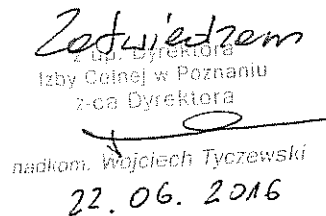 Zatwierdzam
z up. Dyrektora
Izby Celnej w Poznaniu
z-ca Dyrektora
nadkom. Wojciech Tyczewski
22.06.2016